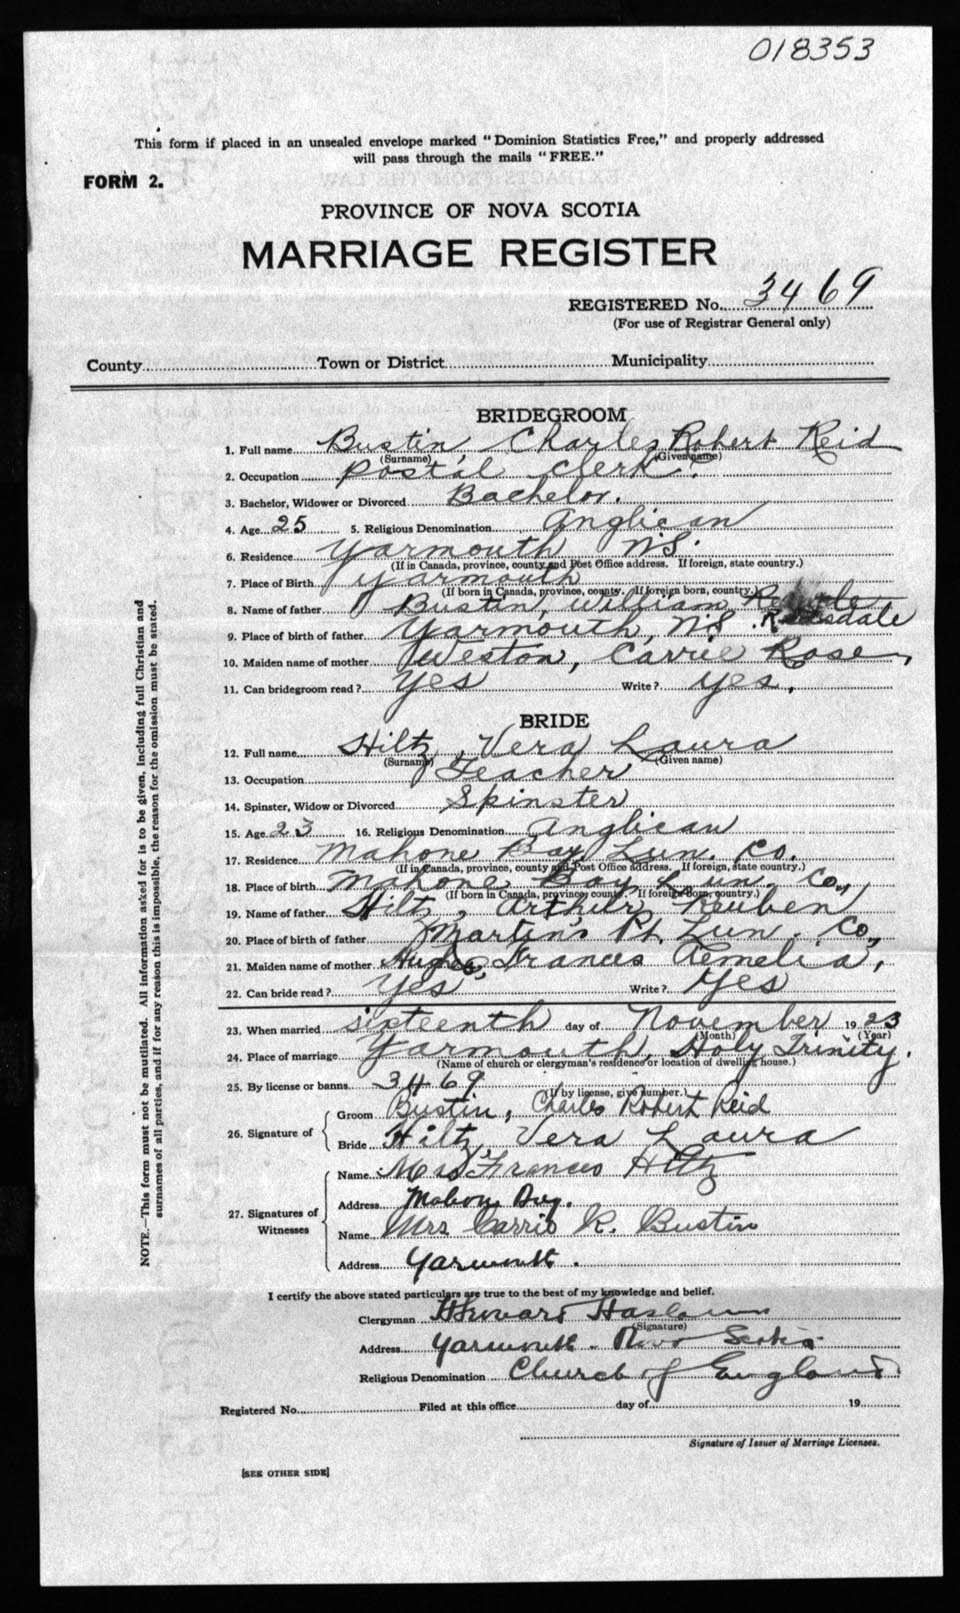 018353
This form if placed in an unsealed envelope marked "Dominion Statistics Free," and properly addressed
will pass through the mails "FREE."
FORM 2.
PROVINCE OF NOVA SCOTIA
MARRIAGE REGISTER
REGISTERED No. 3469
(For use of Registrar General only)
County Town or District Municipality
BRIDEGROOM
1. Full name Bustin Charles Robert Reid
(Surname) (Given name)
2. Occupation Postal Clerk.
3. Bachelor, Widower or Divorced Bachelor.
4. Age 25 5. Religious Denomination Anglican
6. Residence Yarmouth N.S.
(If in Canada, province, county and Post Office address. If foreign, state country.)
7. Place of Birth Yarmouth
(If born in Canada, province, county. If foreign born, country.)
8. Name of father Bustin, William
9. Place of birth of father Yarmouth, N.S.
10. Maiden name of mother Weston, Carrie Rose
11. Can bridegroom read? Yes Write? Yes.
BRIDE
12. Full name Hiltz, Vera Laura
(Surname) (Given name)
13. Occupation Teacher
14. Spinster, Widow or Divorced Spinster
15. Age 23 16. Religious Denomination Anglican
17. Residence Mahone Bay Lun. Co.
(If in Canada, province, county and Post Office address. If foreign, state country.)
18. Place of birth Mahone Bay Lun. Co.,
(If born in Canada, province, county. If foreign born, country.)
19. Name of father Hiltz, Arthur Reuben
20. Place of birth of father Martins Pt. Lun. Co.,
21. Maiden name of mother Frances
22. Can bride read? Yes Write? Yes
23. When married sixteenth day of November 1923
(Month) (Year)
24. Place of marriage Yarmouth, Holy Trinity.
(Name of church or clergyman's residence or location of dwelling house.)
25. By license or banns 3469
(If by license, give number.)
26. Signature of Groom Bustin, Charles Robert Reid
Bride Hiltz, Vera Laura
27. Signatures of Witnesses
Name Mrs Frances Hiltz
Address Mahone Bay.
Name Mrs Carrie R. Bustin
Address Yarmouth.
I certify the above stated particulars are true to the best of my knowledge and belief.
Clergyman
(Signature)
Address Yarmouth. Nova Scotia
Religious Denomination Church of England
Registered No. Filed at this office day of 19
Signature of Issuer of Marriage Licenses.
[SEE OTHER SIDE]
NOTE.—This form must not be mutilated. All information asked for is to be given, including full Christian and
surnames of all parties, and if for any reason this is impossible, the reason for the omission must be stated.